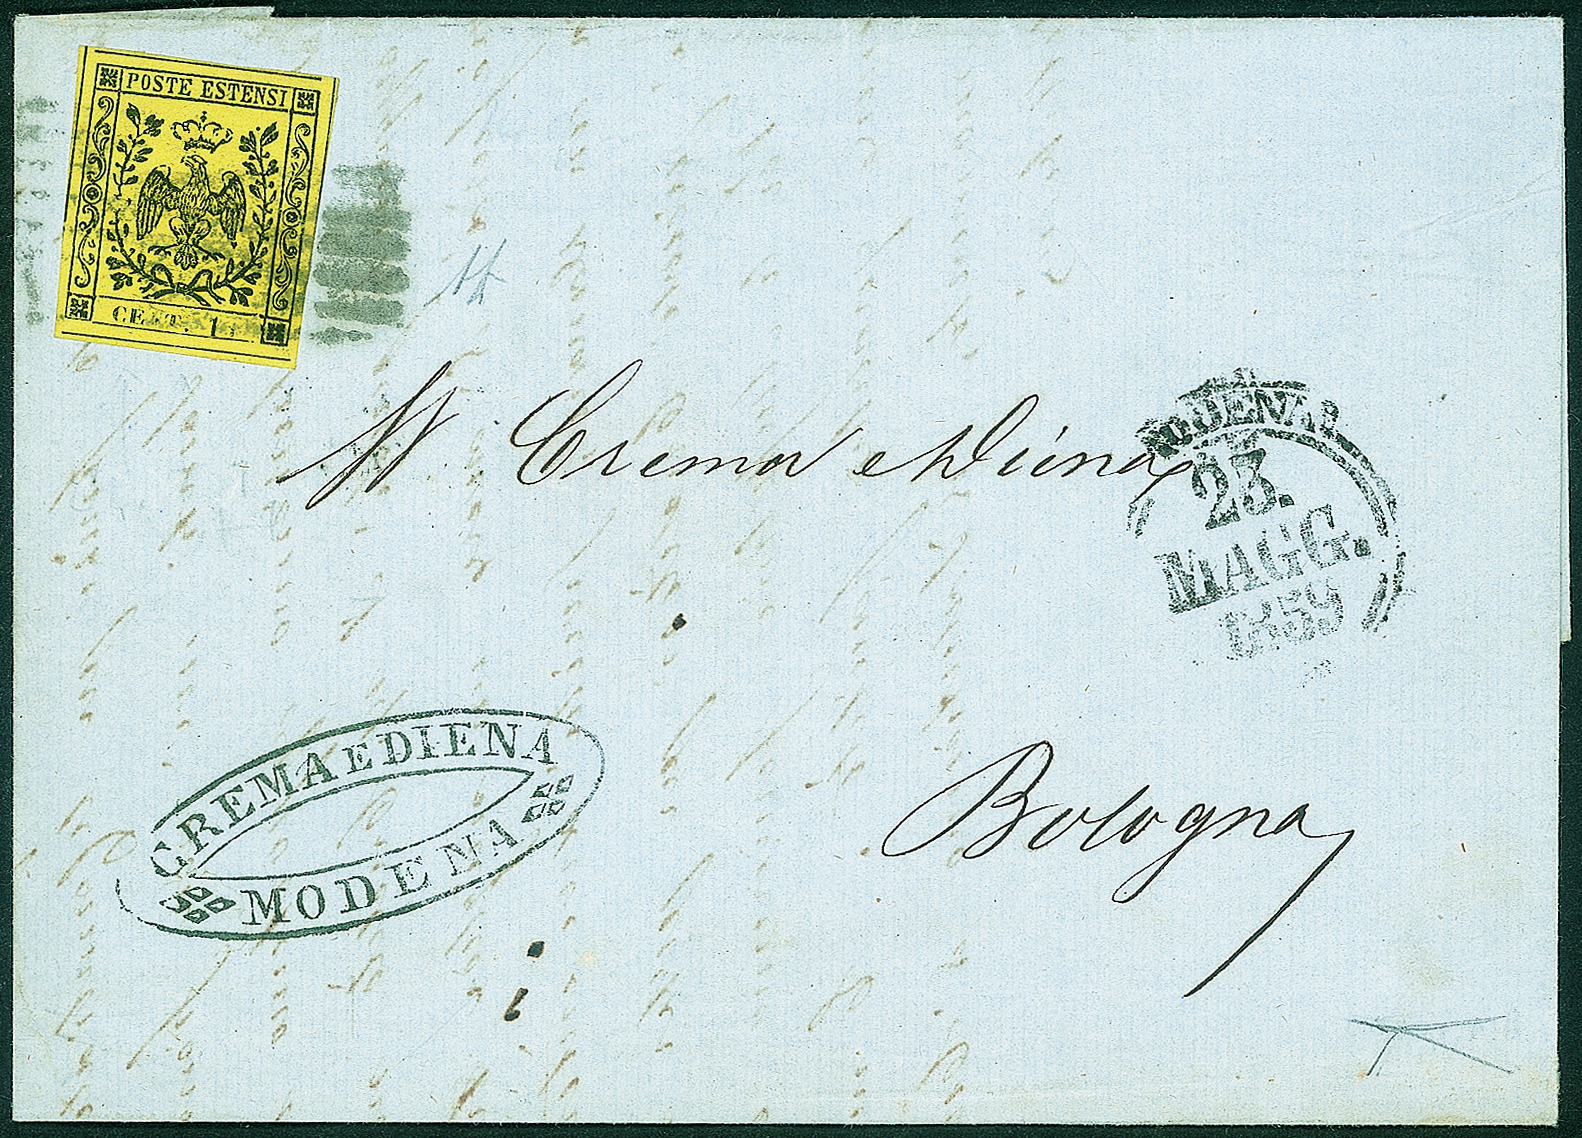 POSTE ESTENSI
CENT. 1
Crema e Diena
MODENA
23.
MAGG.
859
CREMA E DIENA
MODENA
Bologna